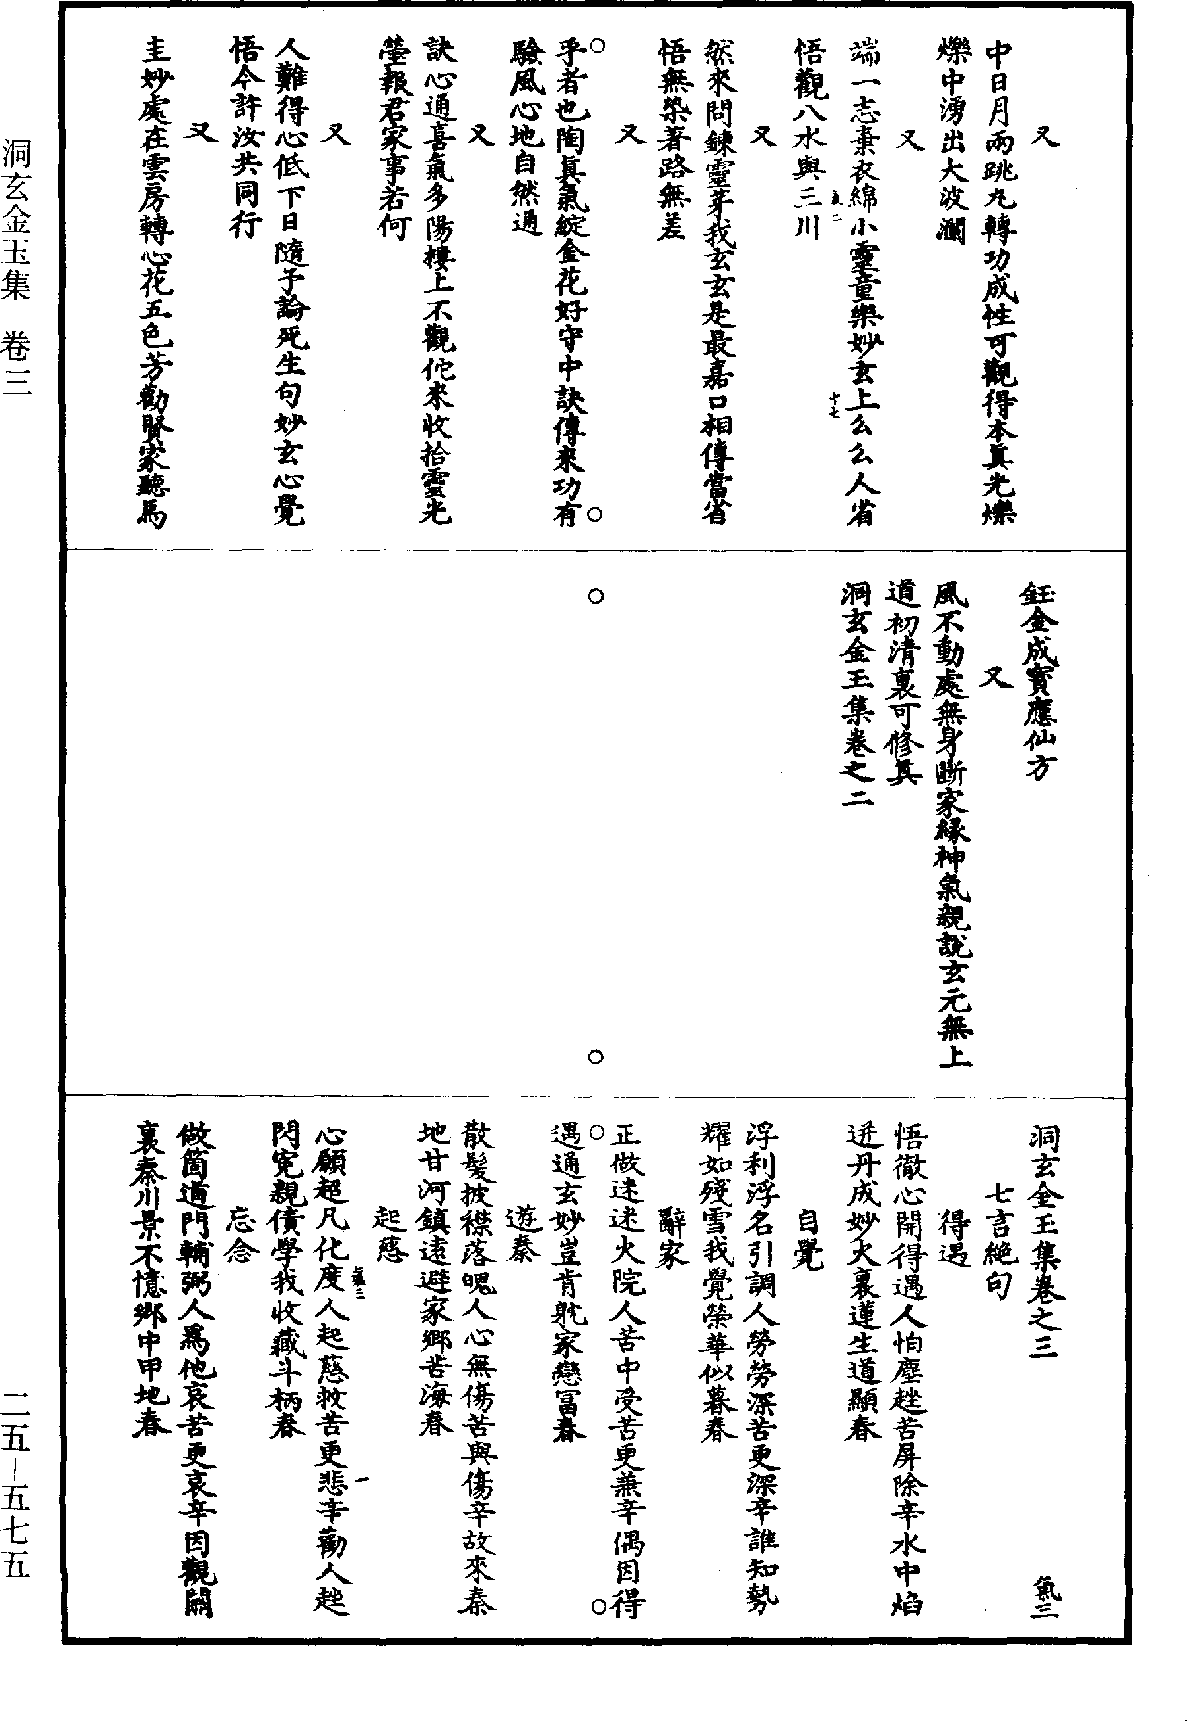 又
中日月兩跳丸轉功成性可觀得本眞光爍
爍中湧出大波瀾
又
端一志棄衣綿小靈童樂妙玄上么么人省
悟觀八水與三川
十七
又
然來問鍊靈芽我玄玄是最嘉口相傳當省
悟無染著路無差
又
乎者也陶眞氣綻金花好守中訣傳來功有
驗風心地自然通
又
訣心通喜氣多陽樓上不觀佗來收拾靈光
瑩報君家事若何
又
人難得心低下日隨予論死生句妙玄心覺
悟今許汝共同行
又
圭妙處在雲房轉心花五色芳勸賢家聽馬
鈺金成寶應仙方
又
風不動處無身斷家緣神氣親說玄元無上
道初清裏可修眞
洞玄金玉集卷之二
洞玄金玉集卷之三
氣三
七言絕句
得遇
悟徹心開得遇人怕塵趖苦屏除辛水中焰
迸丹成妙火裏蓮生道顯春
自覺
浮利浮名引調人勞勞深苦更深辛誰知勢
耀如殘雪我覺榮華似暮春
辭家
正做迷迷火院人苦中受苦更兼辛偶因得
遇通玄妙豈肯躭家戀富春
遊秦
散髮披襟落魄人心無傷苦與傷辛故來秦
地甘河鎮遠避家鄉苦海春
起慈
心願超凡化度人起慈救苦更悲辛勸人趖
閃寃親債學我收藏斗柄春
忘念
做箇通門輔弼人爲他哀苦更哀辛因觀關
裏秦川景不憶鄉中甲地春
洞玄金玉集 卷三
二五—五七五